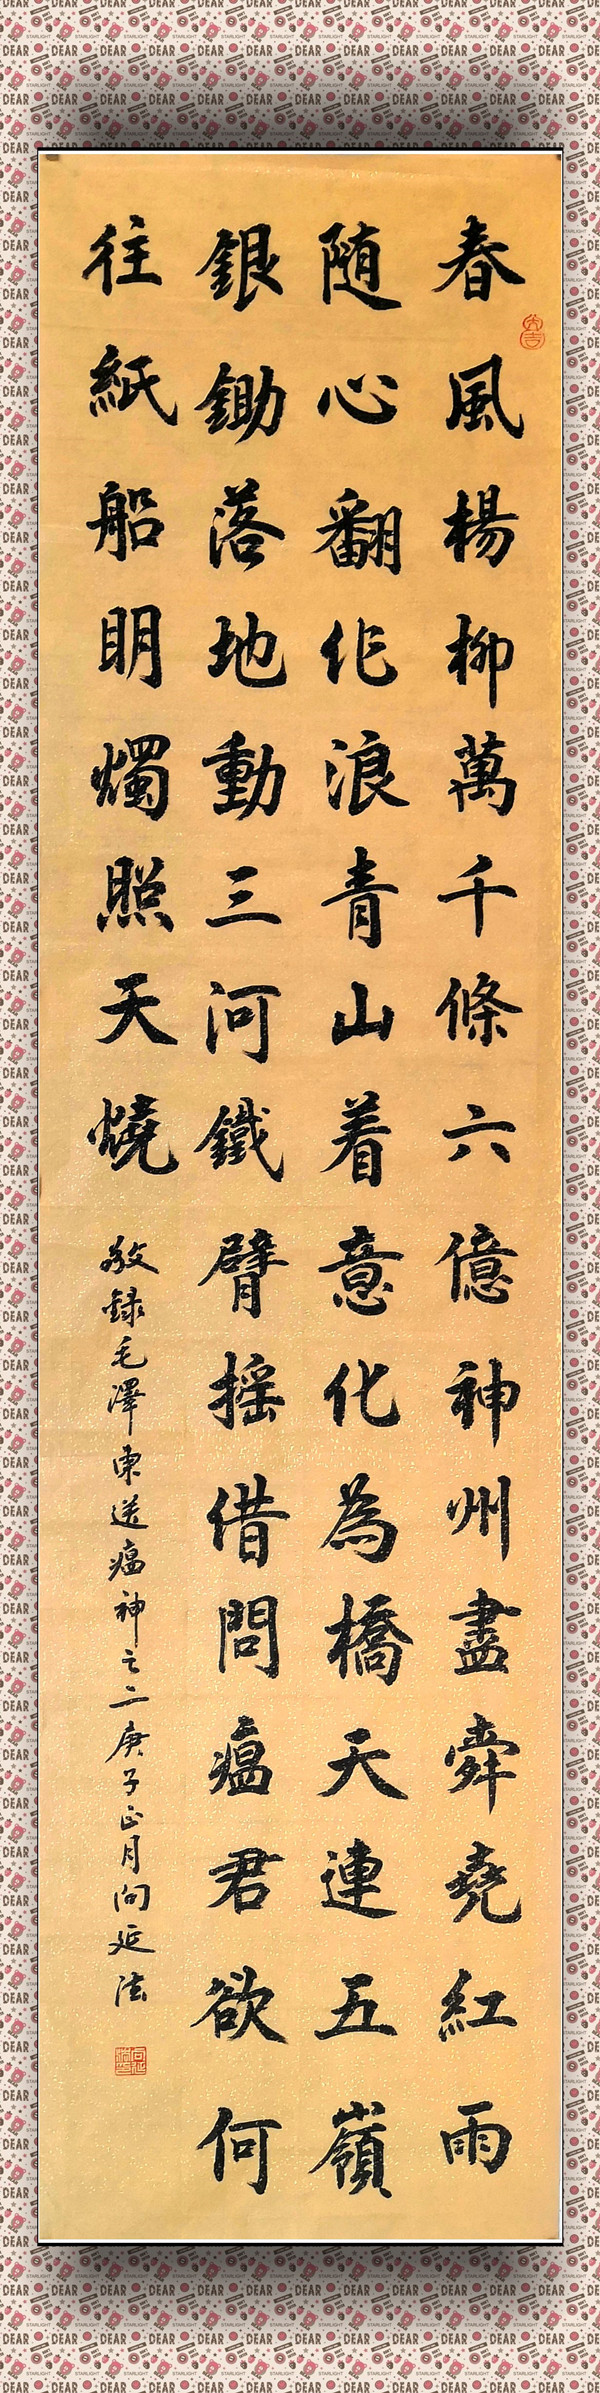 春風楊柳萬千條六億神州盡舜堯紅雨
随心翻作浪青山着意化為橋天連五嶺
銀鋤落地動三河鐵臂摇借問瘟君欲何
往紙船明燭照天燒
敬録毛澤東送瘟神之二庚子正月向延法
大吉
DEAR
STARLIGHT